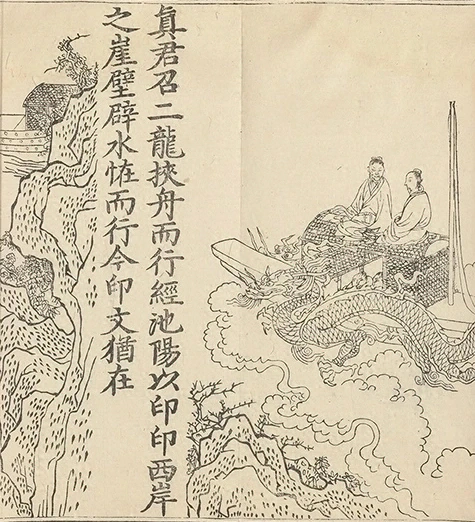 真君召二龍挾舟而行經池陽以印印西岸
之崖壁辟水怪而行今印文猶在